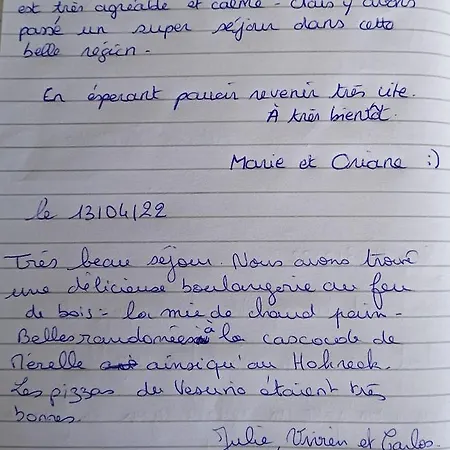 est très agréable et calme - Nous y avons
passé un super séjour dans cette
belle région -
En éspérant pouvoir revenir très vite.
À très bientôt.
Marie et Oriane :)
le 13/04/22
Très beau séjour. Nous avons trouvé
une délicieuse boulangerie au feu
de bois = la mie de chaud pain -
Belles randonées à la cascade de
Mérelle ainsi qu'au Hohneck.
Les pizzas du Vesuvio étaient très
bonnes.
Julie, Vivien et Carlos.